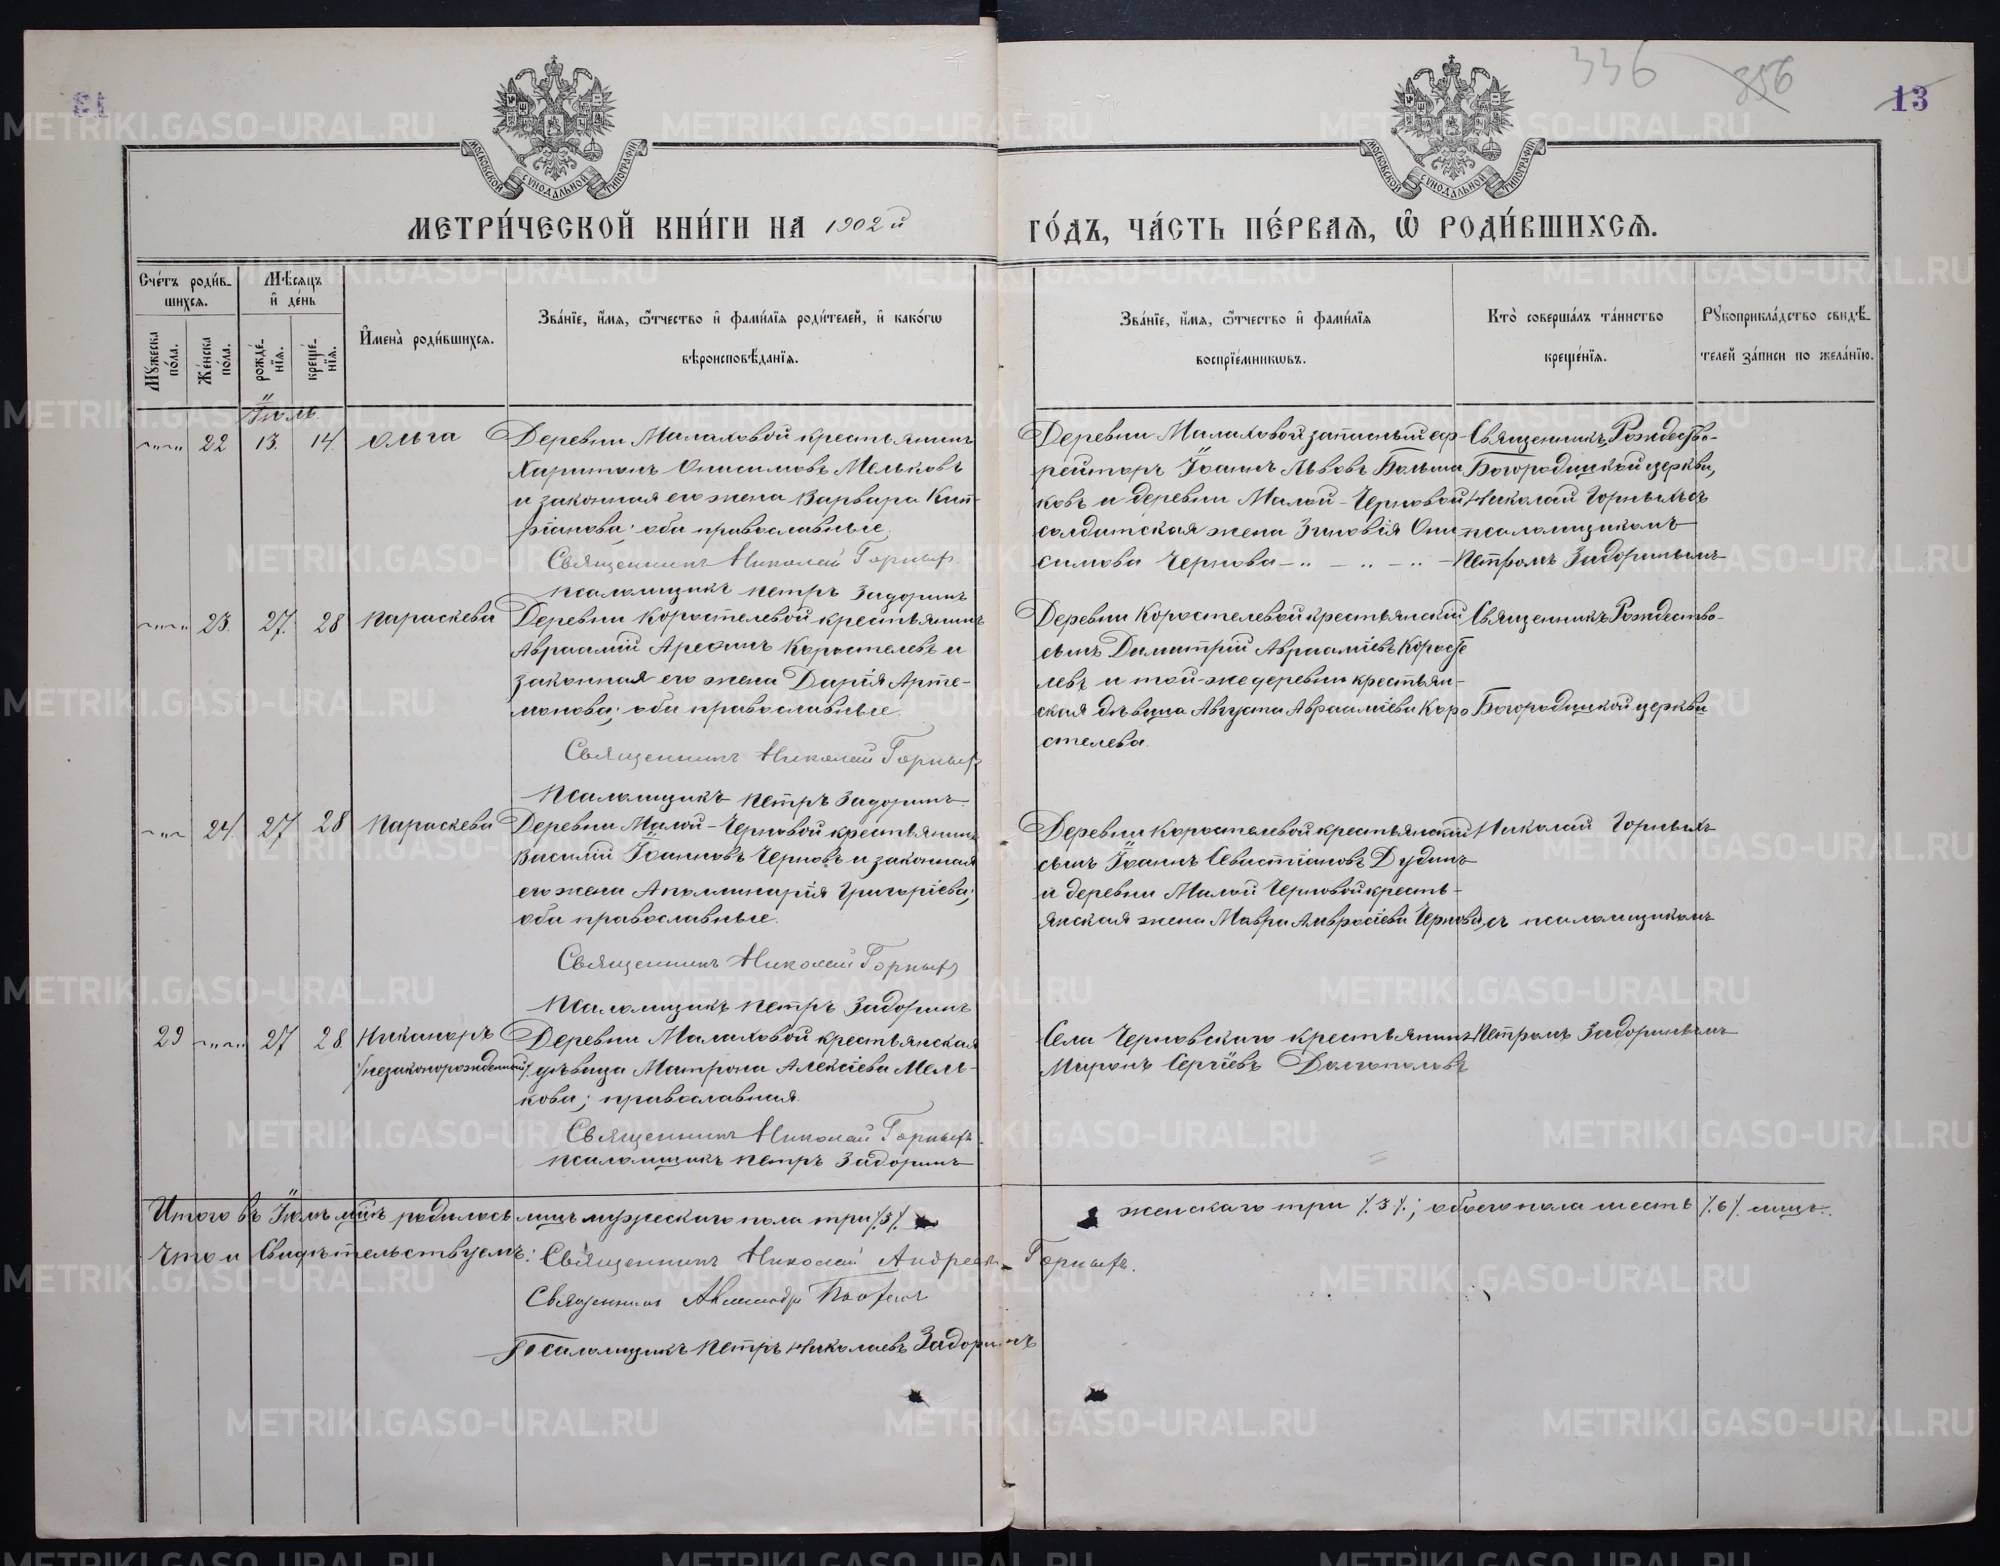 336 356 13
МЕТРИ́ЧЕСКОЙ КНИ́ГИ НА 1902й ГО́ДЪ, ЧА́СТЬ ПЕ́РВАѦ, Ѽ РОДИ́ВШИХСѦ.
МОСКОВСКОЙ СѴНОДАЛЬНОЙ ТИПОГРАФІИ
МОСКОВСКОЙ СѴНОДАЛЬНОЙ ТИПОГРАФІИ
Сче́тъ роди́вшихсѧ.
Мѹ́жеска по́ла.
Же́нска по́ла.
Мѣ́сѧцъ и҆ де́нь
рожде́нїѧ.
креще́нїѧ.
И҆мена̀ роди́вшихсѧ.
Зва́нїе, и҆́мѧ, ѻ҆́тчество и҆ фами́лїѧ роди́телей, и҆ како́гѡ
вѣроисповѣ́данїѧ.
Зва́нїе, и҆́мѧ, ѻ҆́тчество и҆ фами́лїѧ
воспрїе́мникѡвъ.
Кто̀ соверша́лъ та́инство
креще́нїѧ.
Рѹкоприкла́дство свидѣ́-
телей за́писи по жела́нїю.
Іюль.
22 13. 14. Ольга
Деревни Малаховой крестьянинъ
Харитонъ Онисимовъ Мельковъ
и законная его жена Варвара Кип-
ріанова; оба православные.
Священникъ Николай Горныхъ
Псаломщикъ Петръ Задоринъ
Деревни Малаховой запасный еф-
рейторъ Іоаннъ Львовъ Больша
ковъ и деревни Малой-Черновой
солдатская жена Зиновія Они
симова Чернова
Священникъ Рождество-
Богородицкой церкви,
Николай Горныхъ съ
псаломщикомъ
Петромъ Задоринымъ
23. 27. 28 Параскева
Деревни Коростелевой крестьянинъ
Авраамій Арефинъ Коростелевъ и
законная его жена Дарія Арте-
монова; оба православные.
Священникъ Николай Горныхъ
Псаломщикъ Петръ Задоринъ
Деревни Коростелевой крестьянскій
сынъ Димитрій Авраамiевъ Коросте
левъ и той-же деревни крестьян-
ская дѣвица Августа Авраамiева Коро
стелева.
Священникъ Рождество-
Богородицкой церкви
24. 27 28 Параскева
Деревни Малой-Черновой крестьянинъ
Василій Іоанновъ Черновъ и законная
его жена Аполлинарія Григоріева;
оба православные.
Священникъ Николай Горныхъ
Псаломщикъ Петръ Задоринъ
Деревни Коростелевой крестьянскій
сынъ Іоаннъ Севастіановъ Дудинъ
и деревни Малой Черновой кресть-
янская жена Мавра Амвросіева Чернова
Николай Горныхъ
съ псаломщикомъ
29 27 28 Никаноръ
/незаконорожденный/
Деревни Малаховой крестьянская
дѣвица Матрона Алексіева Мель-
кова; православная.
Священникъ Николай Горныхъ.
Псаломщикъ Петръ Задоринъ
Села Черновскаго крестьянинъ
Миронъ Сергіевъ Долгополовъ
Петромъ Задоринымъ
Итого въ Іюлѣ мцѣ родилось лицъ мужескаго пола три /3/. женскаго три /3/; обоего пола шесть /6/ лицъ.
Что и свидѣтельствуемъ: Священникъ Николай Андреевъ Горныхъ.
Священникъ Александръ
Псаломщикъ Петръ Николаевъ Задоринъ
METRIKI.GASO-URAL.RU